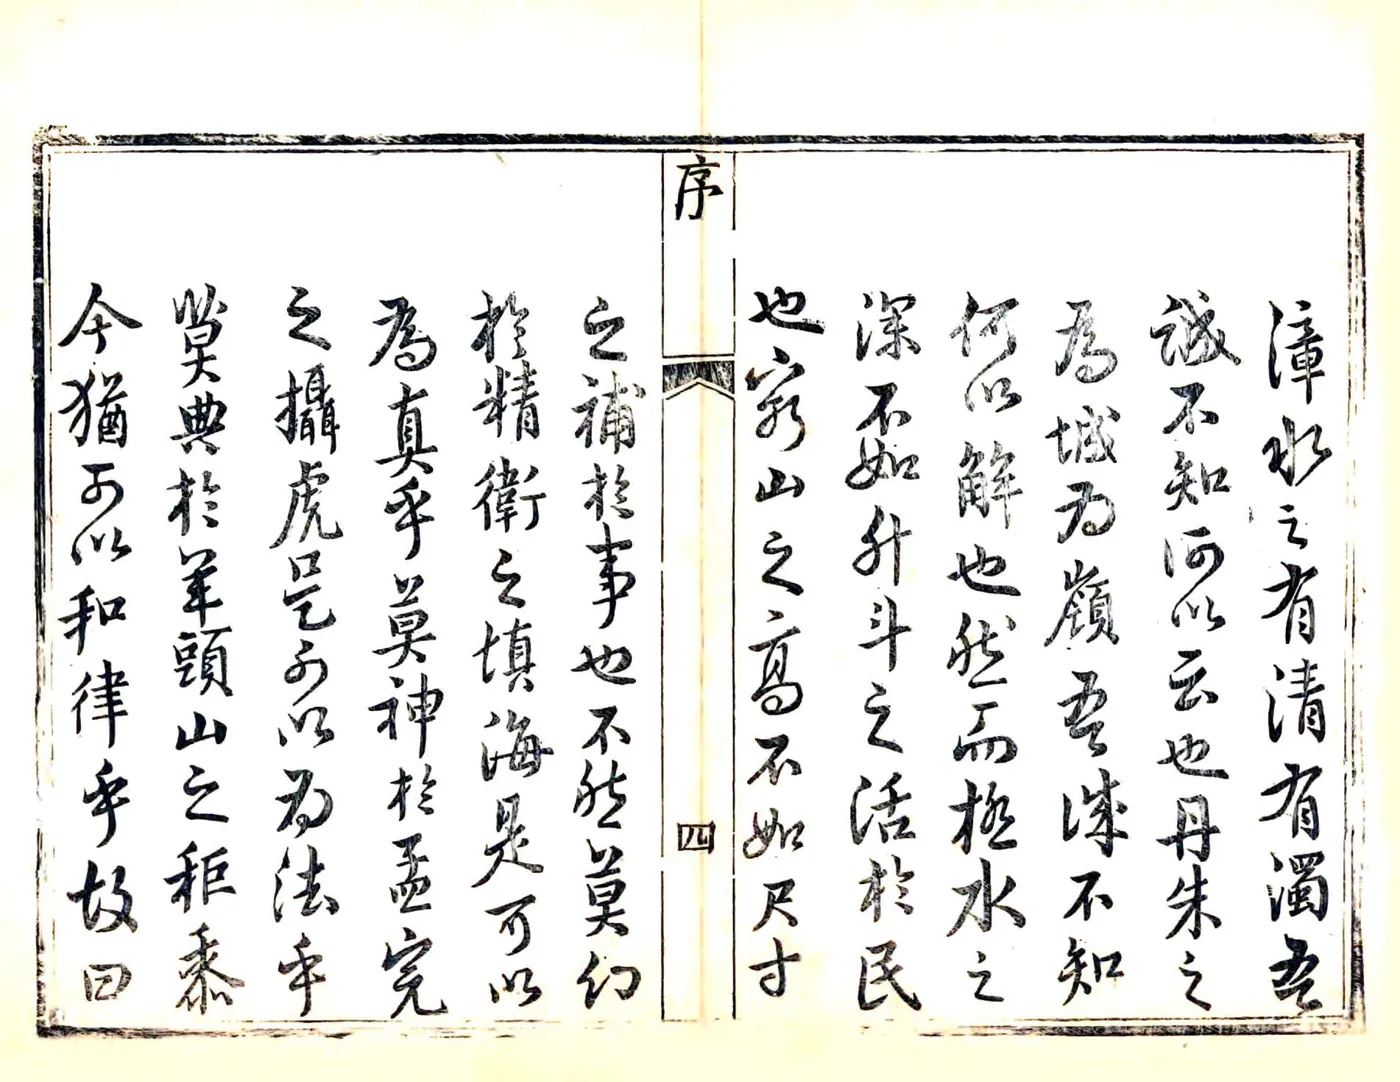 漳水之有清有濁吾
誠不知何以云也丹朱之
為城為嶺吾誠不知
何以解也然而極水之
深不如升斗之活於民
也窮山之高不如尺寸
序
四
之補於事也不然莫幻
於精衛之填海是可以
為真乎莫神於孟完
之攝虎是可以為法乎
莫典於羊頭山之秬黍
今猶可以和律乎故曰